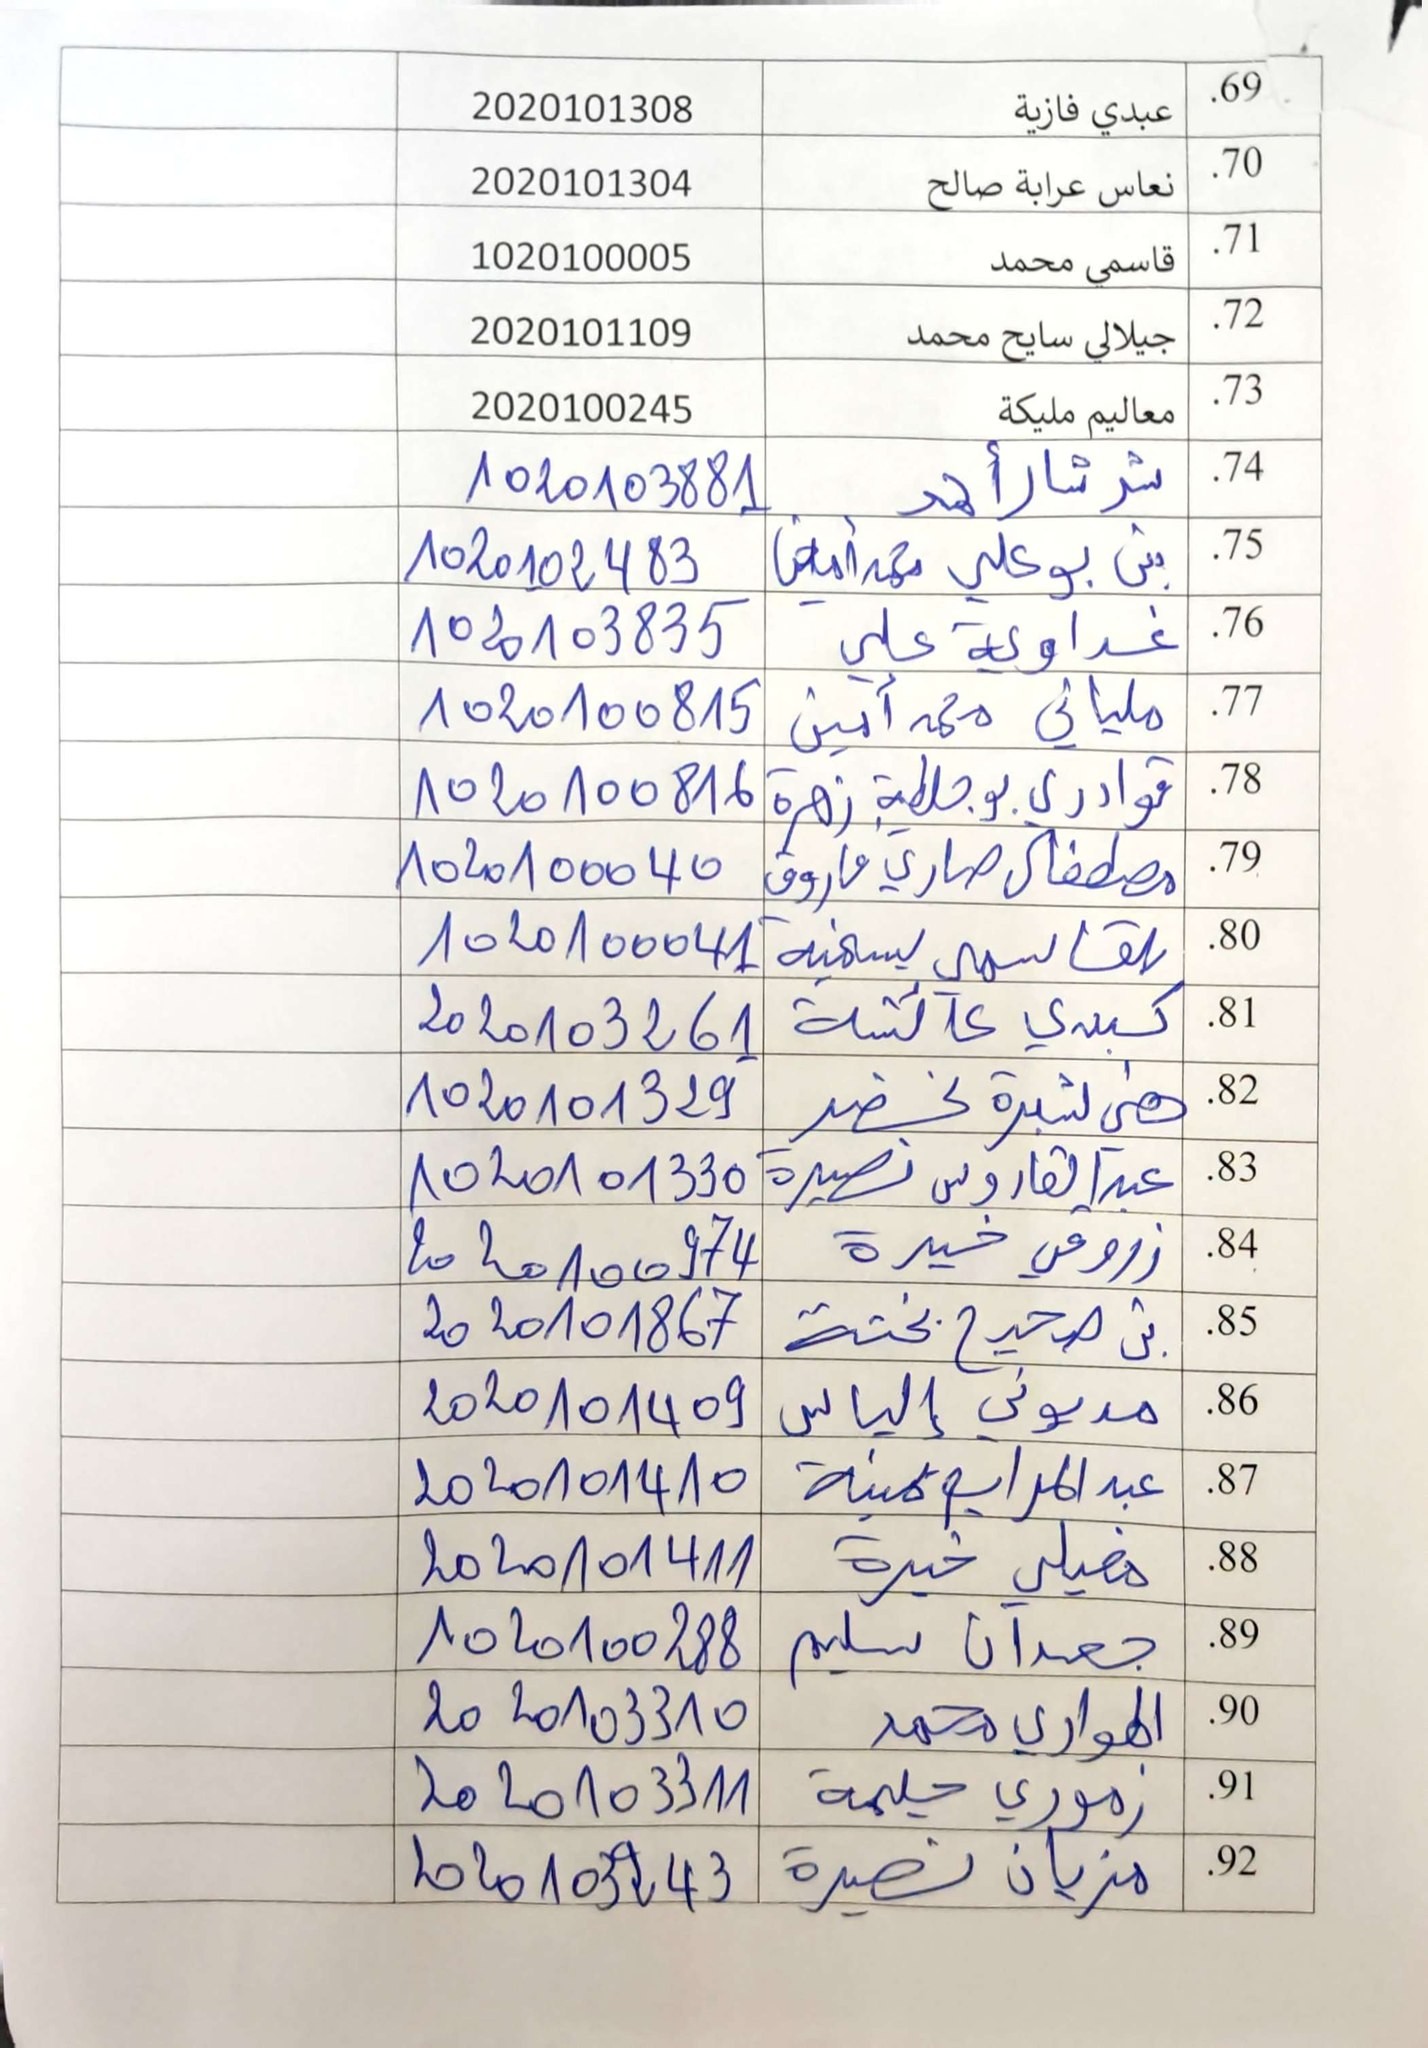 69. عبدي فازية 2020101308
70. نعاس عرابة صالح 2020101304
71. قاسمي محمد 1020100005
72. جيلالي سايح محمد 2020101109
73. معاليم مليكة 2020100245
74. شرشار أحمد 1020103881
75. بن بوعلي محمد أمين 1020102483
76. غداوية علي 1020103835
77. ملياني محمد أمين 1020100815
78. قوادري بوجلطية زهرة 1020100816
79. مصطفاي صاري فاروق 1020100040
80. بلقاسمي يسمينة 1020100041
81. كبيدي عائشة 2020103261
82. هني شبرة لخضر 1020101329
83. نصيرة 1020101330
84. زروقي خيرة 2020100974
85. بن صحيح بختة 2020101867
86. مديوني إلياس 2020101409
87. عبد 2020101410
88. فضيلي خيرة 2020101411
89. جعدان سليم 1020100288
90. الهواري محمد 2020103310
91. زموري حليمة 2020103311
92. مزيان نصيرة